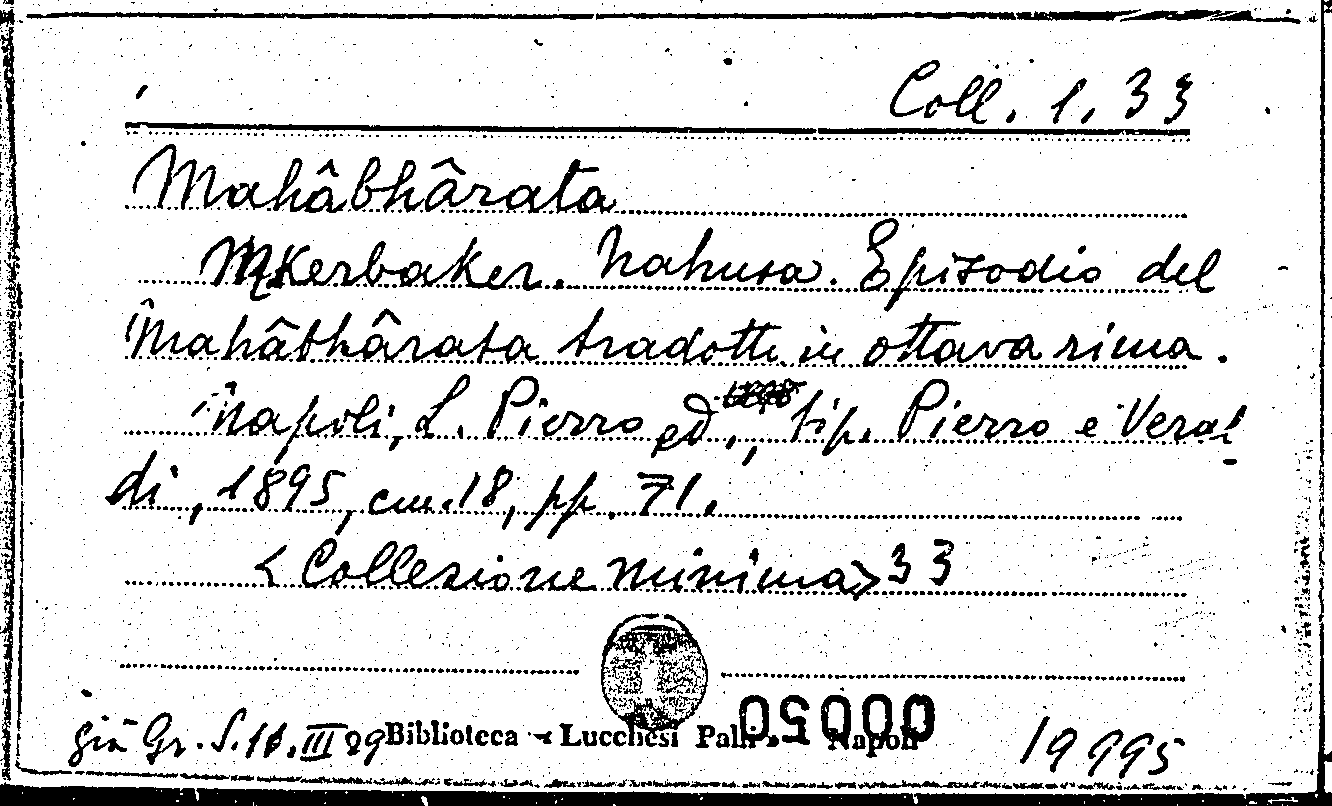 Coll. 1. 33
Mahâbhârata
M. Kerbaker. Nahusa. Episodio del
Mahâbhârata tradotto in ottava rima.
Napoli, L. Pierro ed., tip. Pierro e Veral-
di, 1895, cm. 18, pp. 71.
< Collezione minima> 33
00050
già Gr. S. 16. III 29 Biblioteca « Lucchesi Palli » - Napoli 19995